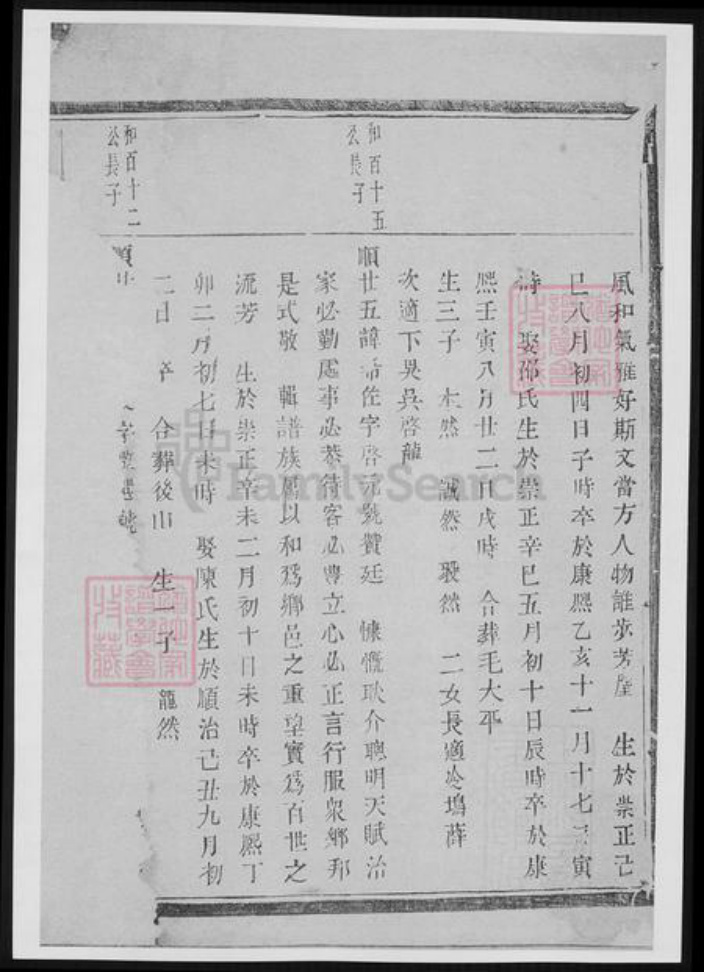 風和氣雅好斯文當方人物誰步芳塵 生於崇正己
巳八月初四日子時卒於康熙乙亥十一月十七日寅
時 娶邵氏生於崇正辛巳五月初十日辰時卒於康
熙壬寅八月廿二日戌時 合葬毛大平
生三子 木然 誠然 毅然 二女長適冷塢薛
次適下吳吳啓龍
和百十五
公長子
順廿五諱希佐字啓元號贊廷 慷慨耿介聰明天賦治
家必勤處事必恭待客必豊立心必正言行服衆鄉邦
是式敬 輯譜族 以和爲鄉邑之重望實爲百世之
流芳 生於崇正辛未二月初十日未時卒於康熙丁
卯二月初七日未時 娶陳氏生於順治己丑九月初
二日 卒 合葬後山 生一子 龍然
和百十二
公長子
順廿
FamilySearch